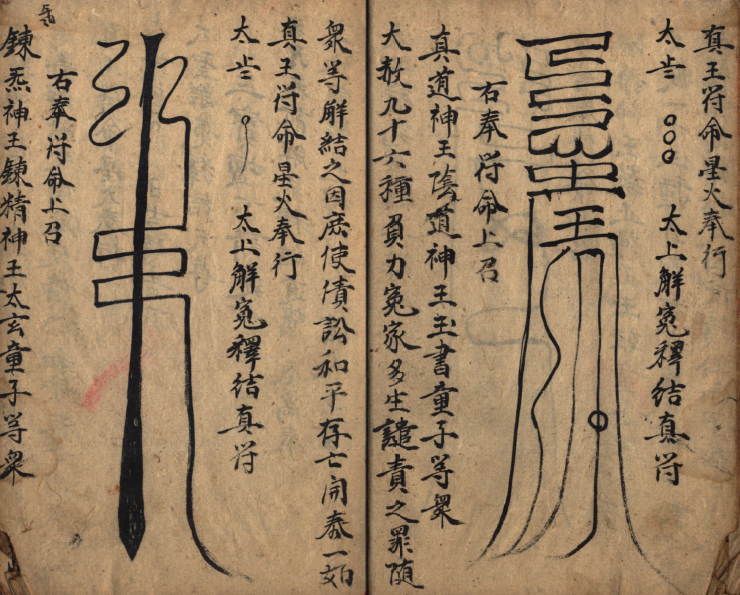 真王符命星火奉行
太歲 太上解冤釋結真符
右奉符命上召
真道神王陰道神王玉書童子等眾
大赦九十六種負力冤家多生譴責之罪隨
衆等解結之因庶使債訟和平存亡開泰一如
真王符命星火奉行
太歲 太上解冤釋結真符
右奉符命上召
鍊炁神王鍊精神王太玄童子等眾